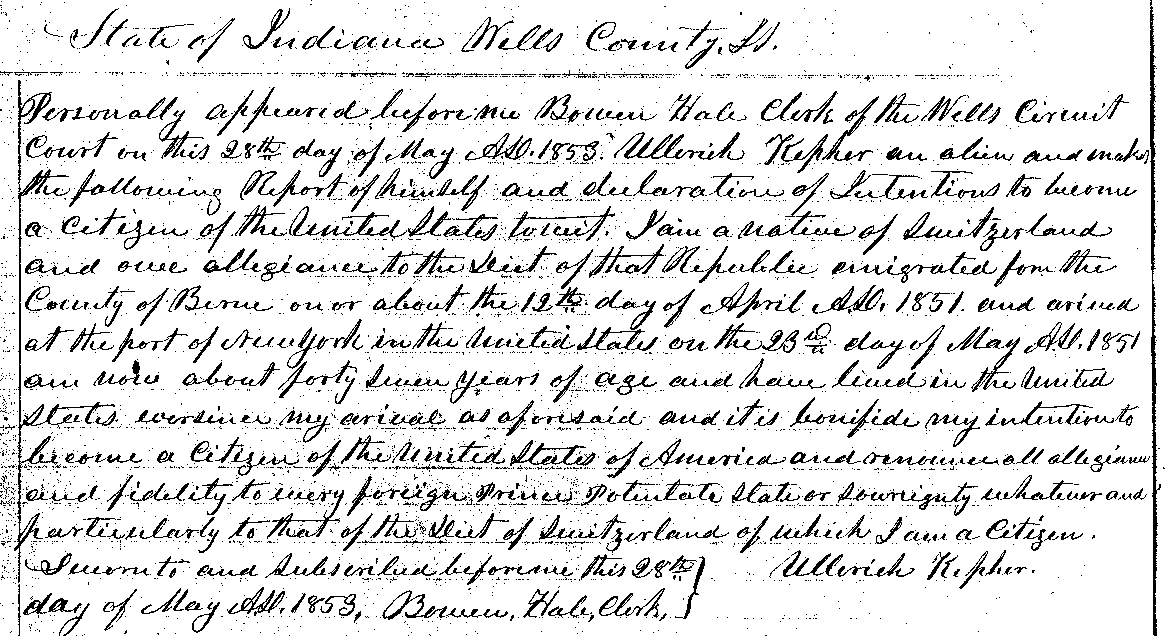 State of Indiana Wells County, Ss.
Personally appeared before me Bowen Hale Clerk of the Wells Circuit
Court on this 28th day of May A.D. 1853. Ullerich Kepher an alien and makes
the following Report of himself and declaration of Intentions to become
a Citizen of the United States towit. I am a native of Switzerland
and owe allegiance to the Diet of that Republic emigrated from the
County of Berne on or about the 12th day of April A.D. 1851. and arived
at the port of New York in the United States on the 23rd day of May A.D. 1851
am now about forty seven years of age and have lived in the United
States ever since my arival as aforesaid and it is bonifide my intention to
become a Citizen of the United States of America and renounce all allegiance
and fidelity to every foreign Prince Potentate State or Sovreignty whatever and
particularly to that of the Diet of Switzerland of which I am a Citizen.
Sworn to and Subscribed before me this 28th } Ullerich Kepher.
day of May A.D. 1853, Bowen, Hale, Clerk,